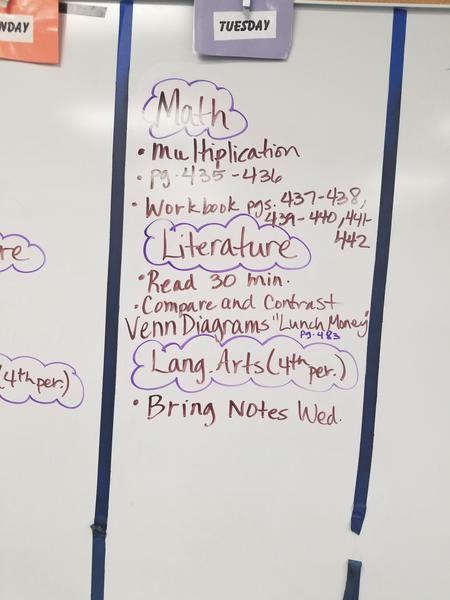 NDAY
TUESDAY
Math
• Multiplication
• pg. 435-436
• Workbook pgs. 437-438,
439-440, 441-
442
re
Literature
• Read 30 min.
• Compare and Contrast
Venn Diagrams "Lunch Money"
pg. 483
(4th per.)
Lang. Arts (4th per.)
• Bring Notes Wed.